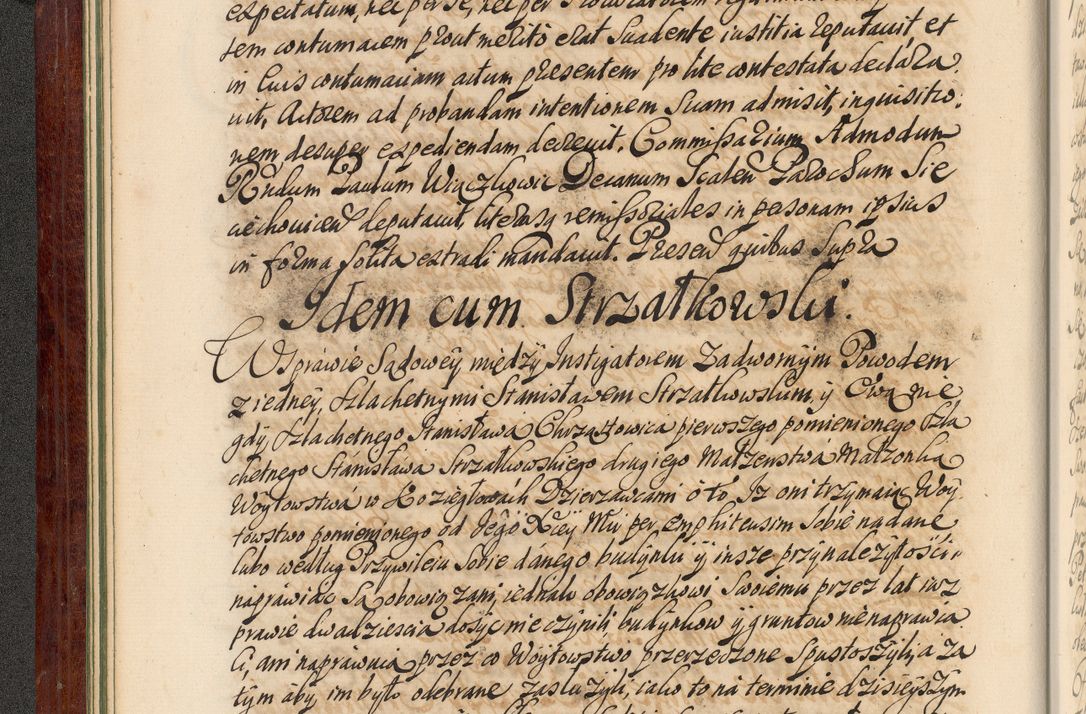 expectatum, nec per se, nec per Procuratorem
tem contumacem prout merito erat Suadente iustitia reputauit et
in Cuius contumaciam actum presentem pro lite contestata declara
uit, Actorem ad probandam intentionem Suam admisit, inquisitio:
nem desuper expediendam decreuit. Commissarium Admodum
Rndum Paulum Decanum Scalen Parochum Sie
ciechouicen deputauit, literasq remissoriales in personam ipsius
in forma solita extradi mandauit. Presen quibus Supra
Idem cum Strzałkowski.
W Sprawie Sądowey między Instigatorem Zadwornym Powodem
z iedney, Szlachetnymi Stanisławem Strzałkowskim, y Ewą nie
gdy Szlachetnego Stanisława Chrząstowica pierwszego pomienionego Szla
chetnego Stanisława Strzałkowskiego drugiego Małzenstwa Małzonką
Woytowstwa w Koziegłowach Dzierzawcami o to, Jz oni trzymaiąc Woy
towstwo pomienionego od Jego Xcey Mci per emphiteusim Sobie nadane
lubo według Przywileiu Sobie danego budynku y insze przynalezytości
naprawiać Są obowiązani, iednak obowiązkowi Swoiemu przez lat iusz
prawie dwadziescia dosyc nie czynili, budynkow y gruntow nie naprawia
li, ani naprawuią przez co Woytowstwo przerzeczone Spustoszyli, a za
tym aby im było odebrane zasluzyli, iako to na terminie dzisieyszym